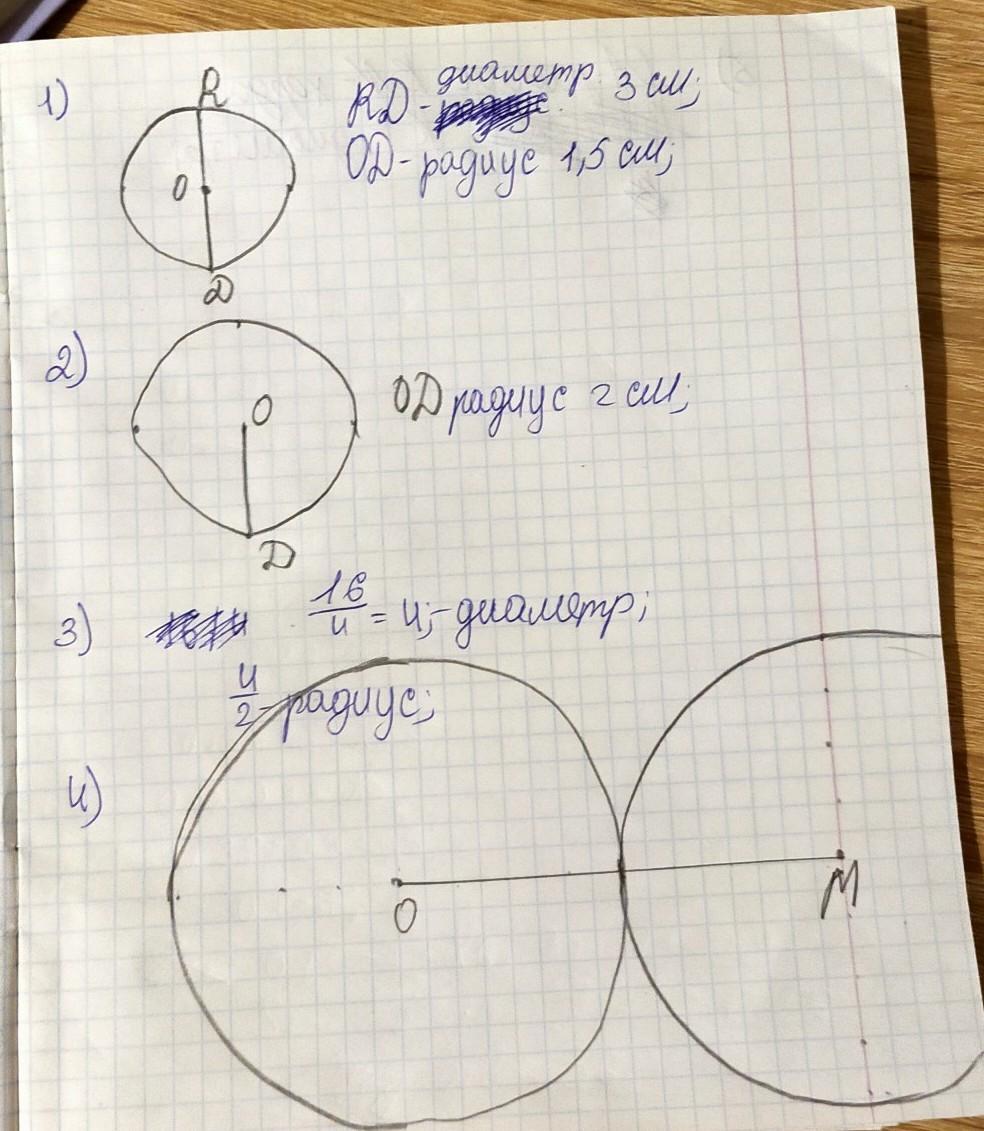 1)
R
RD - диаметр 3 см;
O
OD - радиус 1,5 см;
D
2)
O
OD радиус 2 см;
D
3)
16/4 = 4; - диаметр;
4/2 - радиус;
4)
O
M